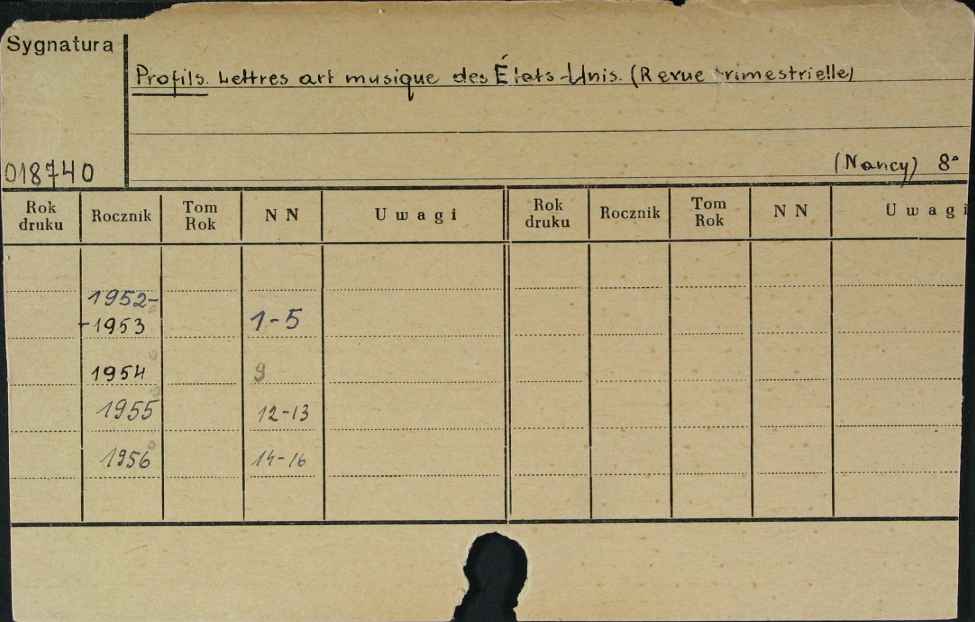 Sygnatura
Profils. Lettres art musique des États-Unis. (Revue trimestrielle)
018740
(Nancy) 8°
Rok druku Rocznik Tom Rok NN Uwagi Rok druku Rocznik Tom Rok NN Uwagi
1952-
-1953 1-5
1954 9
1955 12-13
1956 14-16